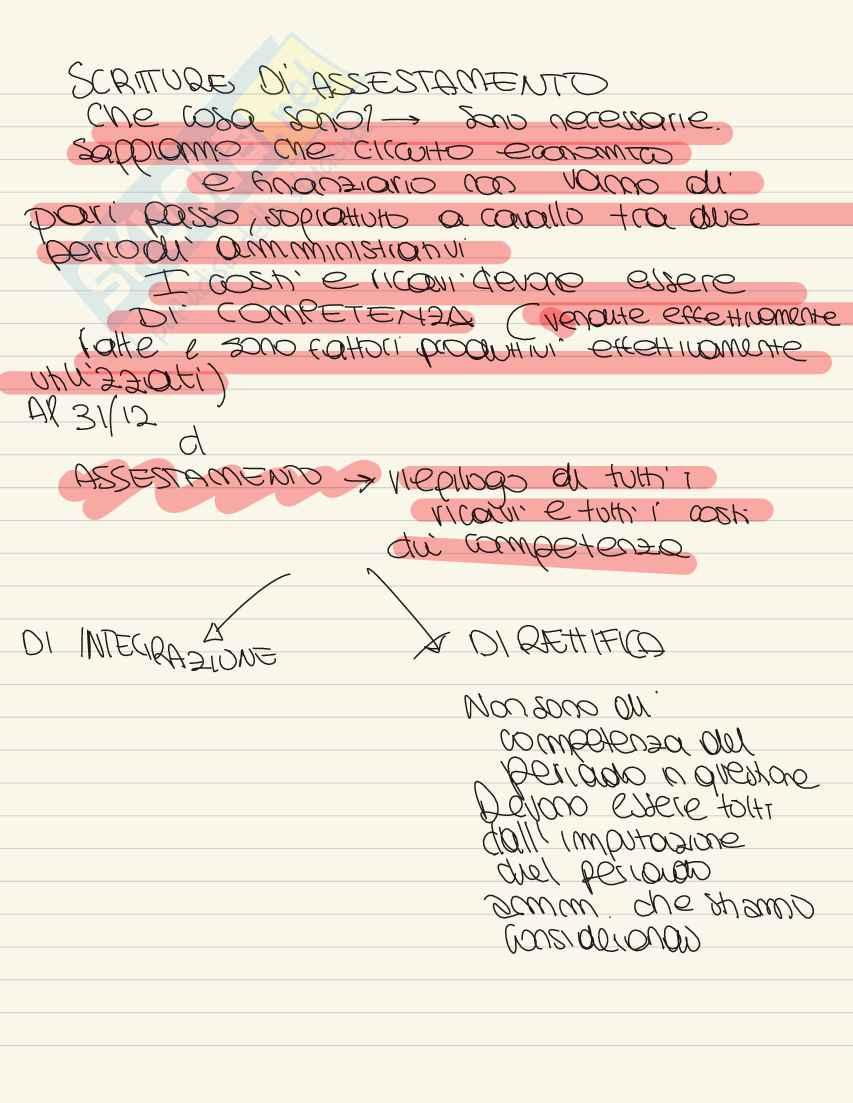 SCRITTURE DI ASSESTAMENTO
Che cosa sono? → Sono necessarie.
Sappiamo che circuito economico
e finanziario non vanno di
pari passo, soprattutto a cavallo tra due
periodi amministrativi
I costi e ricavi devono essere
DI COMPETENZA (vendute effettivamente
fatte e sono fattori produttivi effettivamente
utilizzati)
Al 31/12
d
ASSESTAMENTO → riepilogo di tutti i
ricavi e tutti i costi
di competenza
DI INTEGRAZIONE
DI RETTIFICA
Non sono di
competenza del
periodo in questione
Devono essere tolti
dall'imputazione
del periodo
amm. che stiamo
considerando